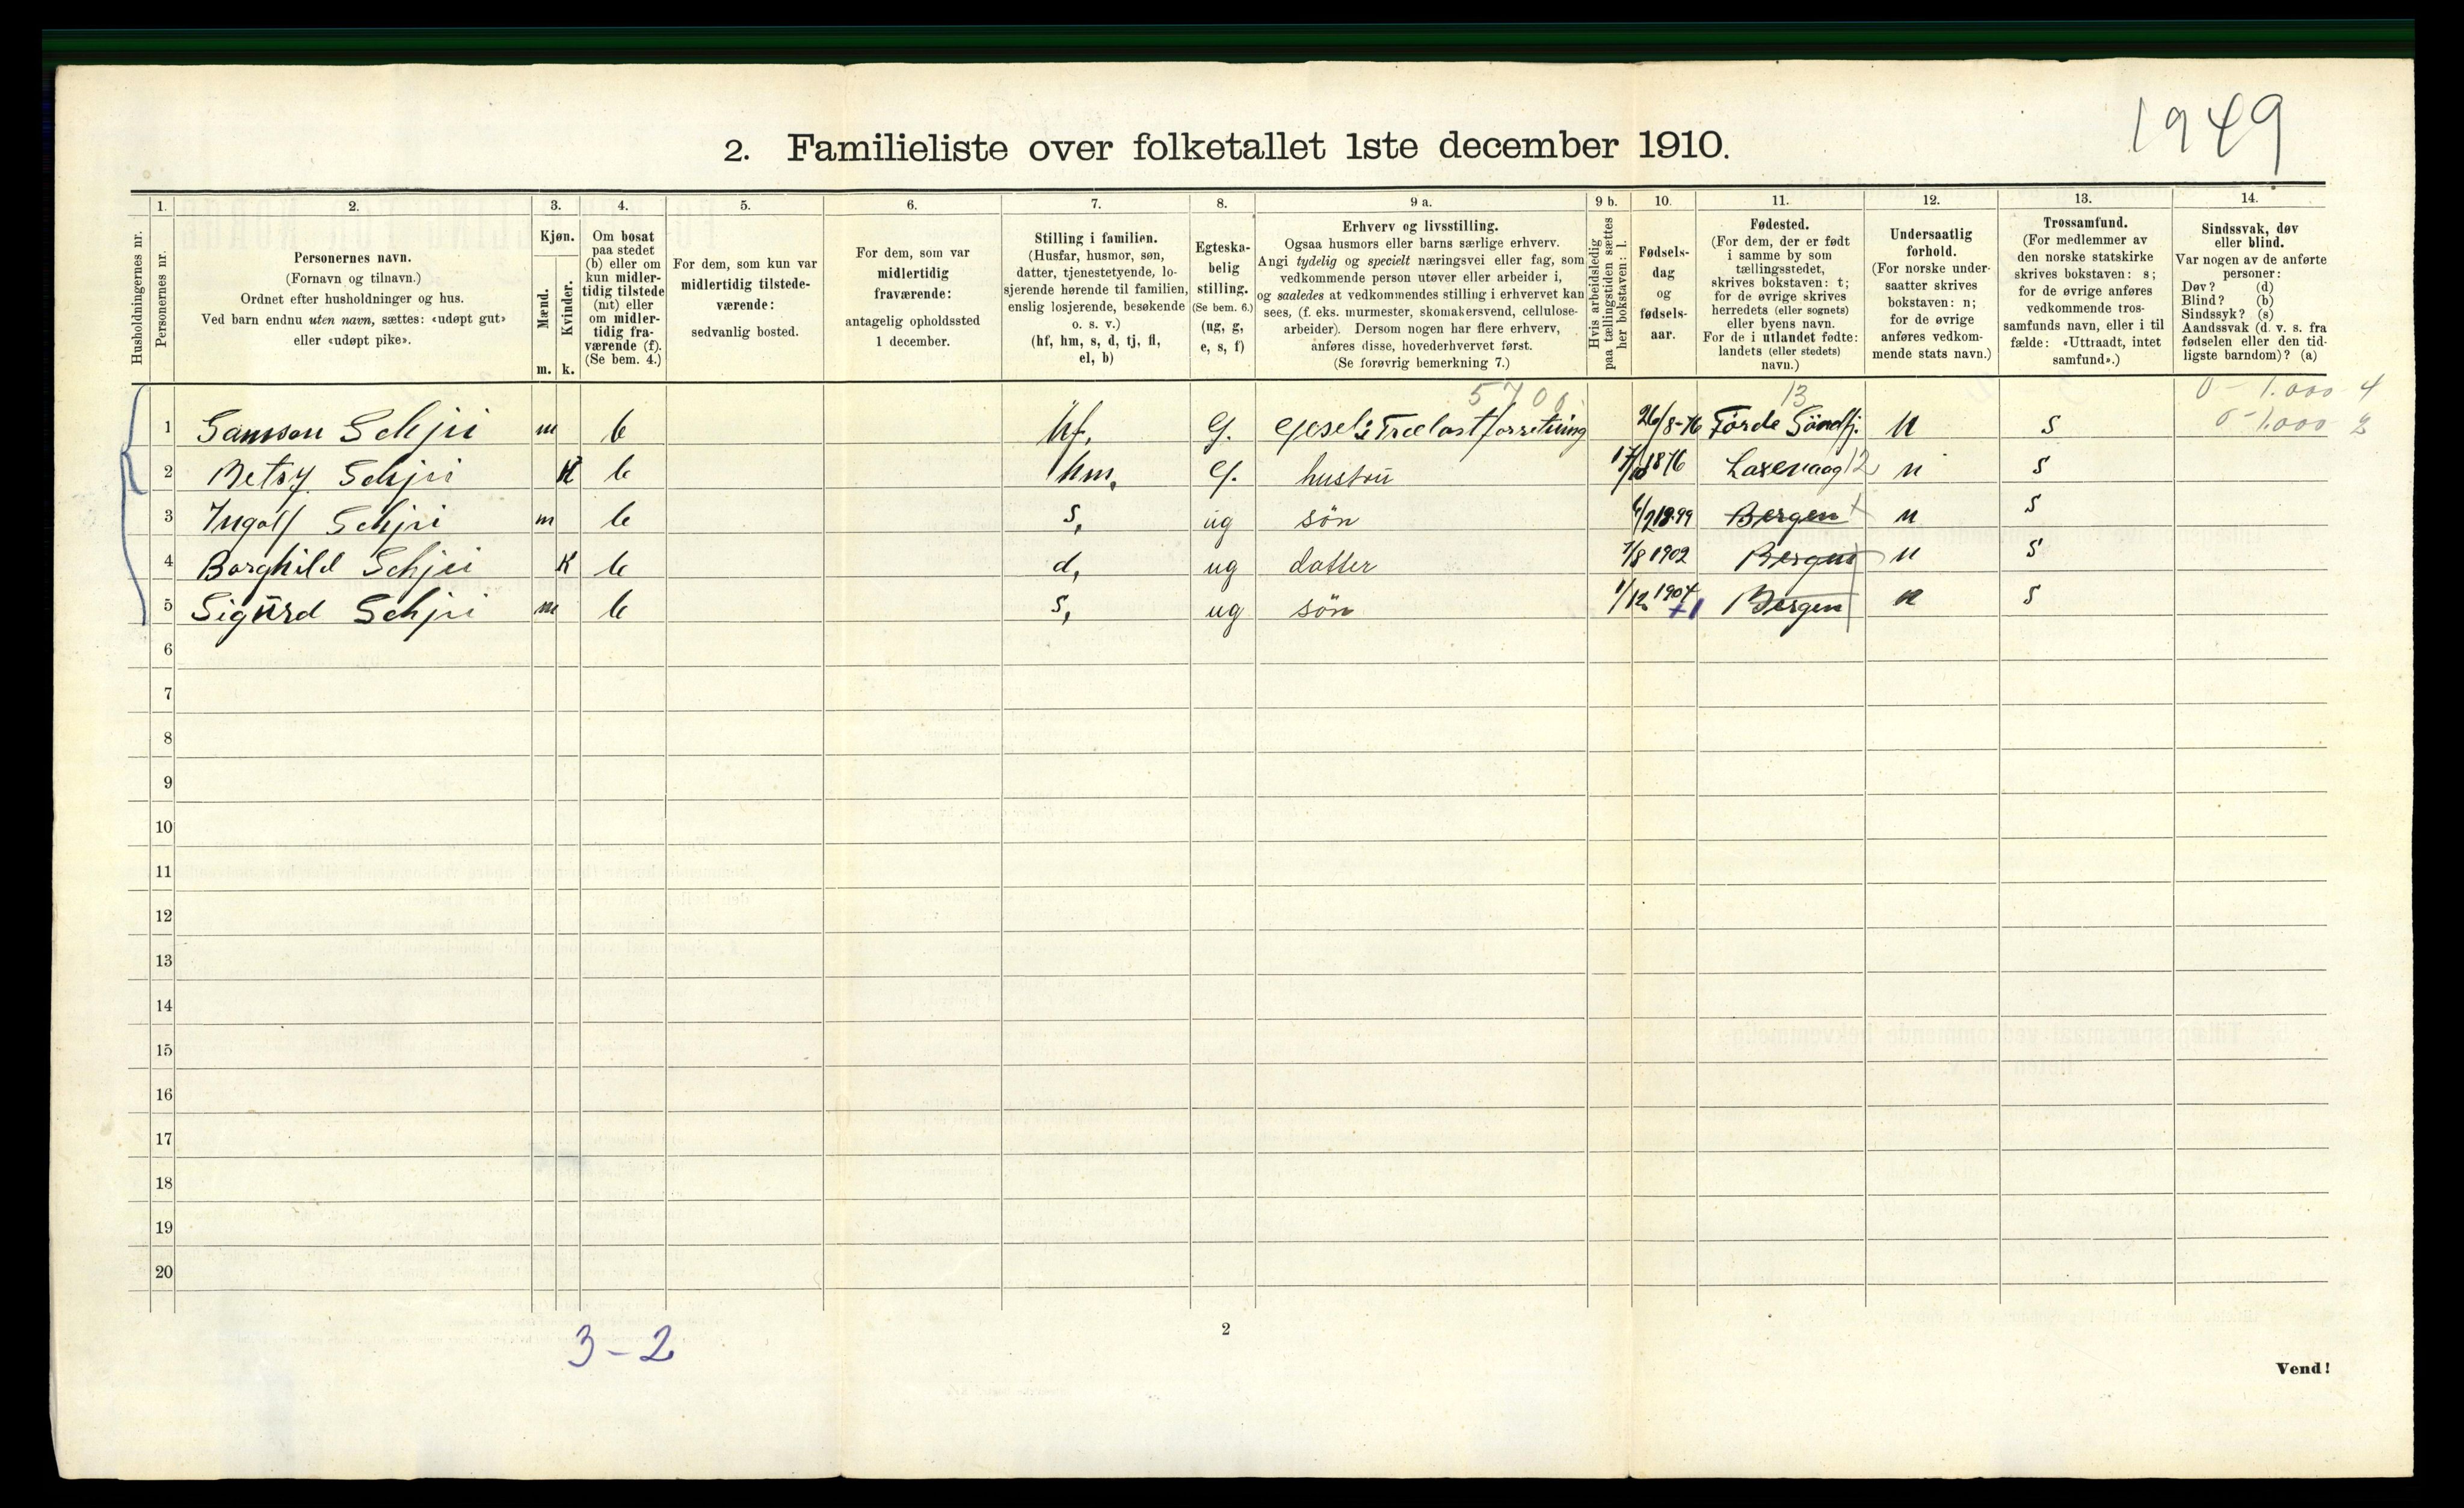 1949
2. Familieliste over folketallet 1ste december 1910.
Husholdningernes nr.
1.
Personernes nr.
2.
Personernes navn.
(Fornavn og tilnavn.)
Ordnet efter husholdninger og hus.
Ved barn endnu uten navn, sættes: «udøpt gut»
eller «udøpt pike».
3.
Kjøn.
Mænd.
Kvinder.
m. k.
4.
Om bosat
paa stedet
(b) eller om
kun midler-
tidig tilstede
(mt) eller
om midler-
tidig fra-
værende (f).
(Se bem. 4.)
5.
For dem, som kun var
midlertidig tilstede-
værende:
sedvanlig bosted.
6.
For dem, som var
midlertidig
fraværende:
antagelig opholdssted
1 december.
7.
Stilling i familien.
(Husfar, husmor, søn,
datter, tjenestetyende, lo-
sjerende hørende til familien,
enslig losjerende, besøkende
o. s. v.)
(hf, hm, s, d, tj, fl,
el, b)
8.
Egteska-
belig
stilling.
(Se bem. 6.)
(ug, g,
e, s, f)
9 a.
Erhverv og livsstilling.
Ogsaa husmors eller barns særlige erhverv.
Angi tydelig og specielt næringsvei eller fag, som
vedkommende person utøver eller arbeider i,
og saaledes at vedkommendes stilling i erhvervet kan
sees, (f. eks. murmester, skomakersvend, cellulose-
arbeider). Dersom nogen har flere erhverv,
anføres disse, hovederhvervet først.
(Se forøvrig bemerkning 7.)
9 b.
Hvis arbeidsledig
paa tællingstiden sættes
her bokstaven: l.
10.
Fødsels-
dag
og
fødsels-
aar.
11.
Fødested.
(For dem, der er født
i samme by som
tællingsstedet,
skrives bokstaven: t;
for de øvrige skrives
herredets (eller sognets)
eller byens navn.
For de i utlandet fødte:
landets (eller stedets)
navn.)
12.
Undersaatlig
forhold.
(For norske under-
saatter skrives
bokstaven: n;
for de øvrige
anføres vedkom-
mende stats navn.)
13.
Trossamfund.
(For medlemmer av
den norske statskirke
skrives bokstaven: s;
for de øvrige anføres
vedkommende tros-
samfunds navn, eller i til
fælde: «Uttraadt, intet
samfund».)
14.
Sindssvak, døv
eller blind.
Var nogen av de anførte
personer:
Døv? (d)
Blind? (b)
Sindssyk? (s)
Aandssvak (d. v. s. fra
fødselen eller den tid-
ligste barndom)? (a)
5700 13 0 - 1.000 4
1 Samson Schjei m b hf, g. Træelastforretning 26/8-76 Førde Söndfj. n s 0 - 1.000 2
2 Betsy Schjei K b hm, g. hustru 1876 Laxevaag 12 n s
3 Ingolf Schjei m b s, ug sön 6/2 1899 Bergen n s
4 Borghild Schjei K b d, ug datter 7/8 1902 Bergen n s
5 Sigurd Schjei m b s, ug sön 1/12 1904 +1 Bergen n s
6
7
8
9
10
11
12
13
14
15
16
17
18
19
20
3 - 2
2
Vend!